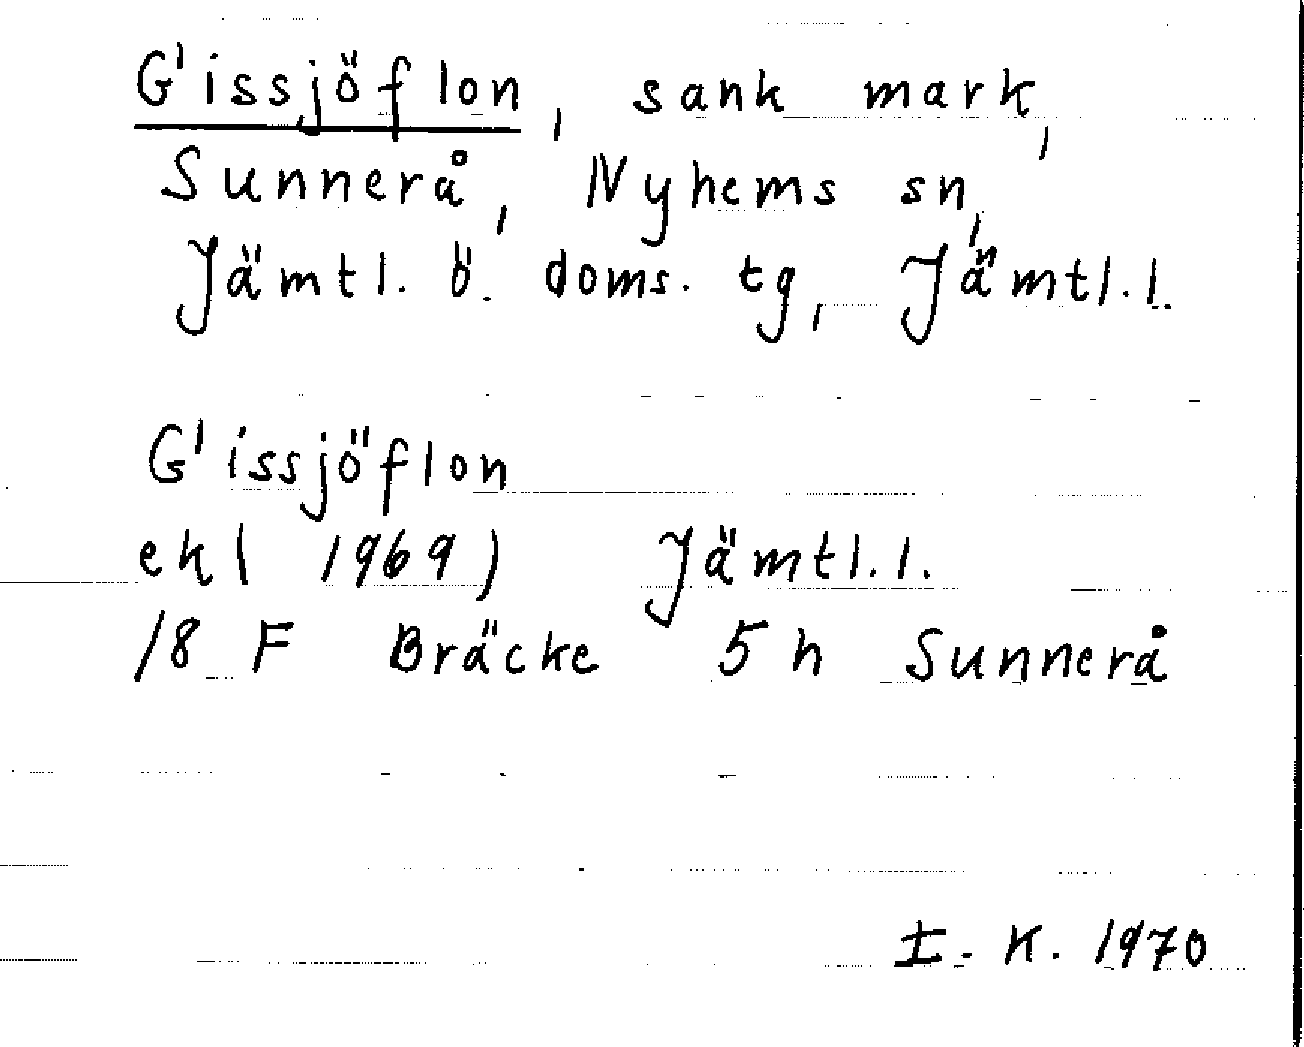 G'issjöflon, sank mark,
Sunnerå, Nyhems sn,
Jämtl. ö. doms. tg, Jämtl.l.
G'issjöflon
ekl 1969) Jämtl.l.
18 F Bräcke 5 h Sunnerå
I. K. 1970